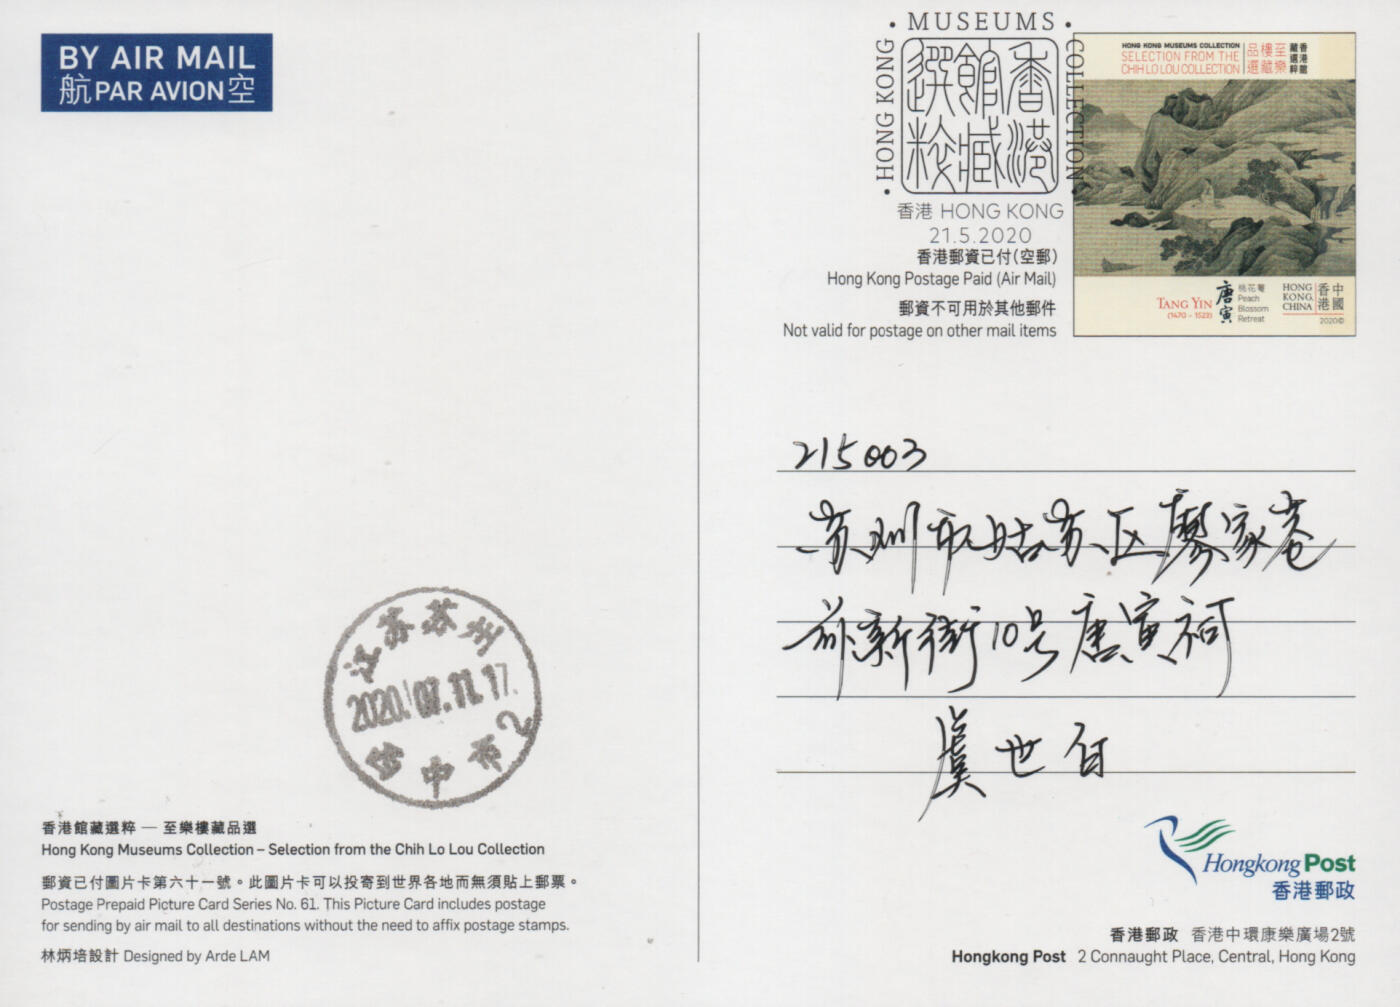 BY AIR MAIL
航 PAR AVION 空
· MUSEUMS ·
· HONG KONG
COLLECTION ·
香港
館藏
選粹
香港 HONG KONG
21.5.2020
香港郵資已付(空郵)
Hong Kong Postage Paid (Air Mail)
郵資不可用於其他郵件
Not valid for postage on other mail items
HONG KONG MUSEUMS COLLECTION
SELECTION FROM THE
CHIH LO LOU COLLECTION
至樂樓藏品選
香港館藏選粹
TANG YIN
(1470 - 1523)
唐寅
桃花菴
Peach
Blossom
Retreat
HONG
KONG,
CHINA
中國香港
2020©
215003
苏州市姑苏区廖家巷
前新街10号唐寅祠
虞世
江苏苏州
2020.07.11.17.
2
香港館藏選粹 — 至樂樓藏品選
Hong Kong Museums Collection – Selection from the Chih Lo Lou Collection
郵資已付圖片卡第六十一號。此圖片卡可以投寄到世界各地而無須貼上郵票。
Postage Prepaid Picture Card Series No. 61. This Picture Card includes postage
for sending by air mail to all destinations without the need to affix postage stamps.
林炳培設計 Designed by Arde LAM
Hongkong Post
香港郵政
香港郵政 香港中環康樂廣場2號
Hongkong Post 2 Connaught Place, Central, Hong Kong